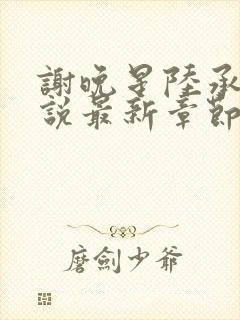 謝晚星陸承
說最新章節
磨劍少爺